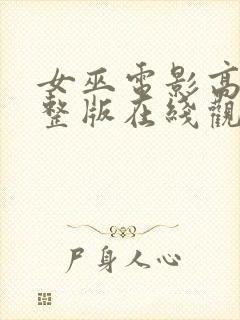 女巫電影高
整版在綫觀
尸身人心